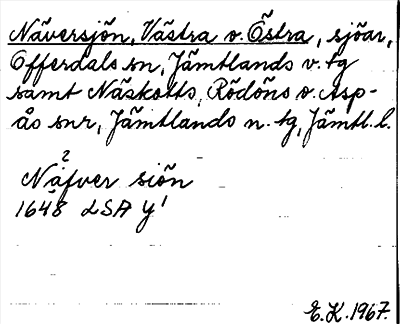 Näversjön, Västra o. Östra, sjöar,
Offerdals sn, Jämtlands v. tg
samt Näskotts, Rödöns o. Asp-
ås snr, Jämtlands n. tg, Jämtl. l.
?
Näfver siön
1648 LSA Y1
E.K. 1967.